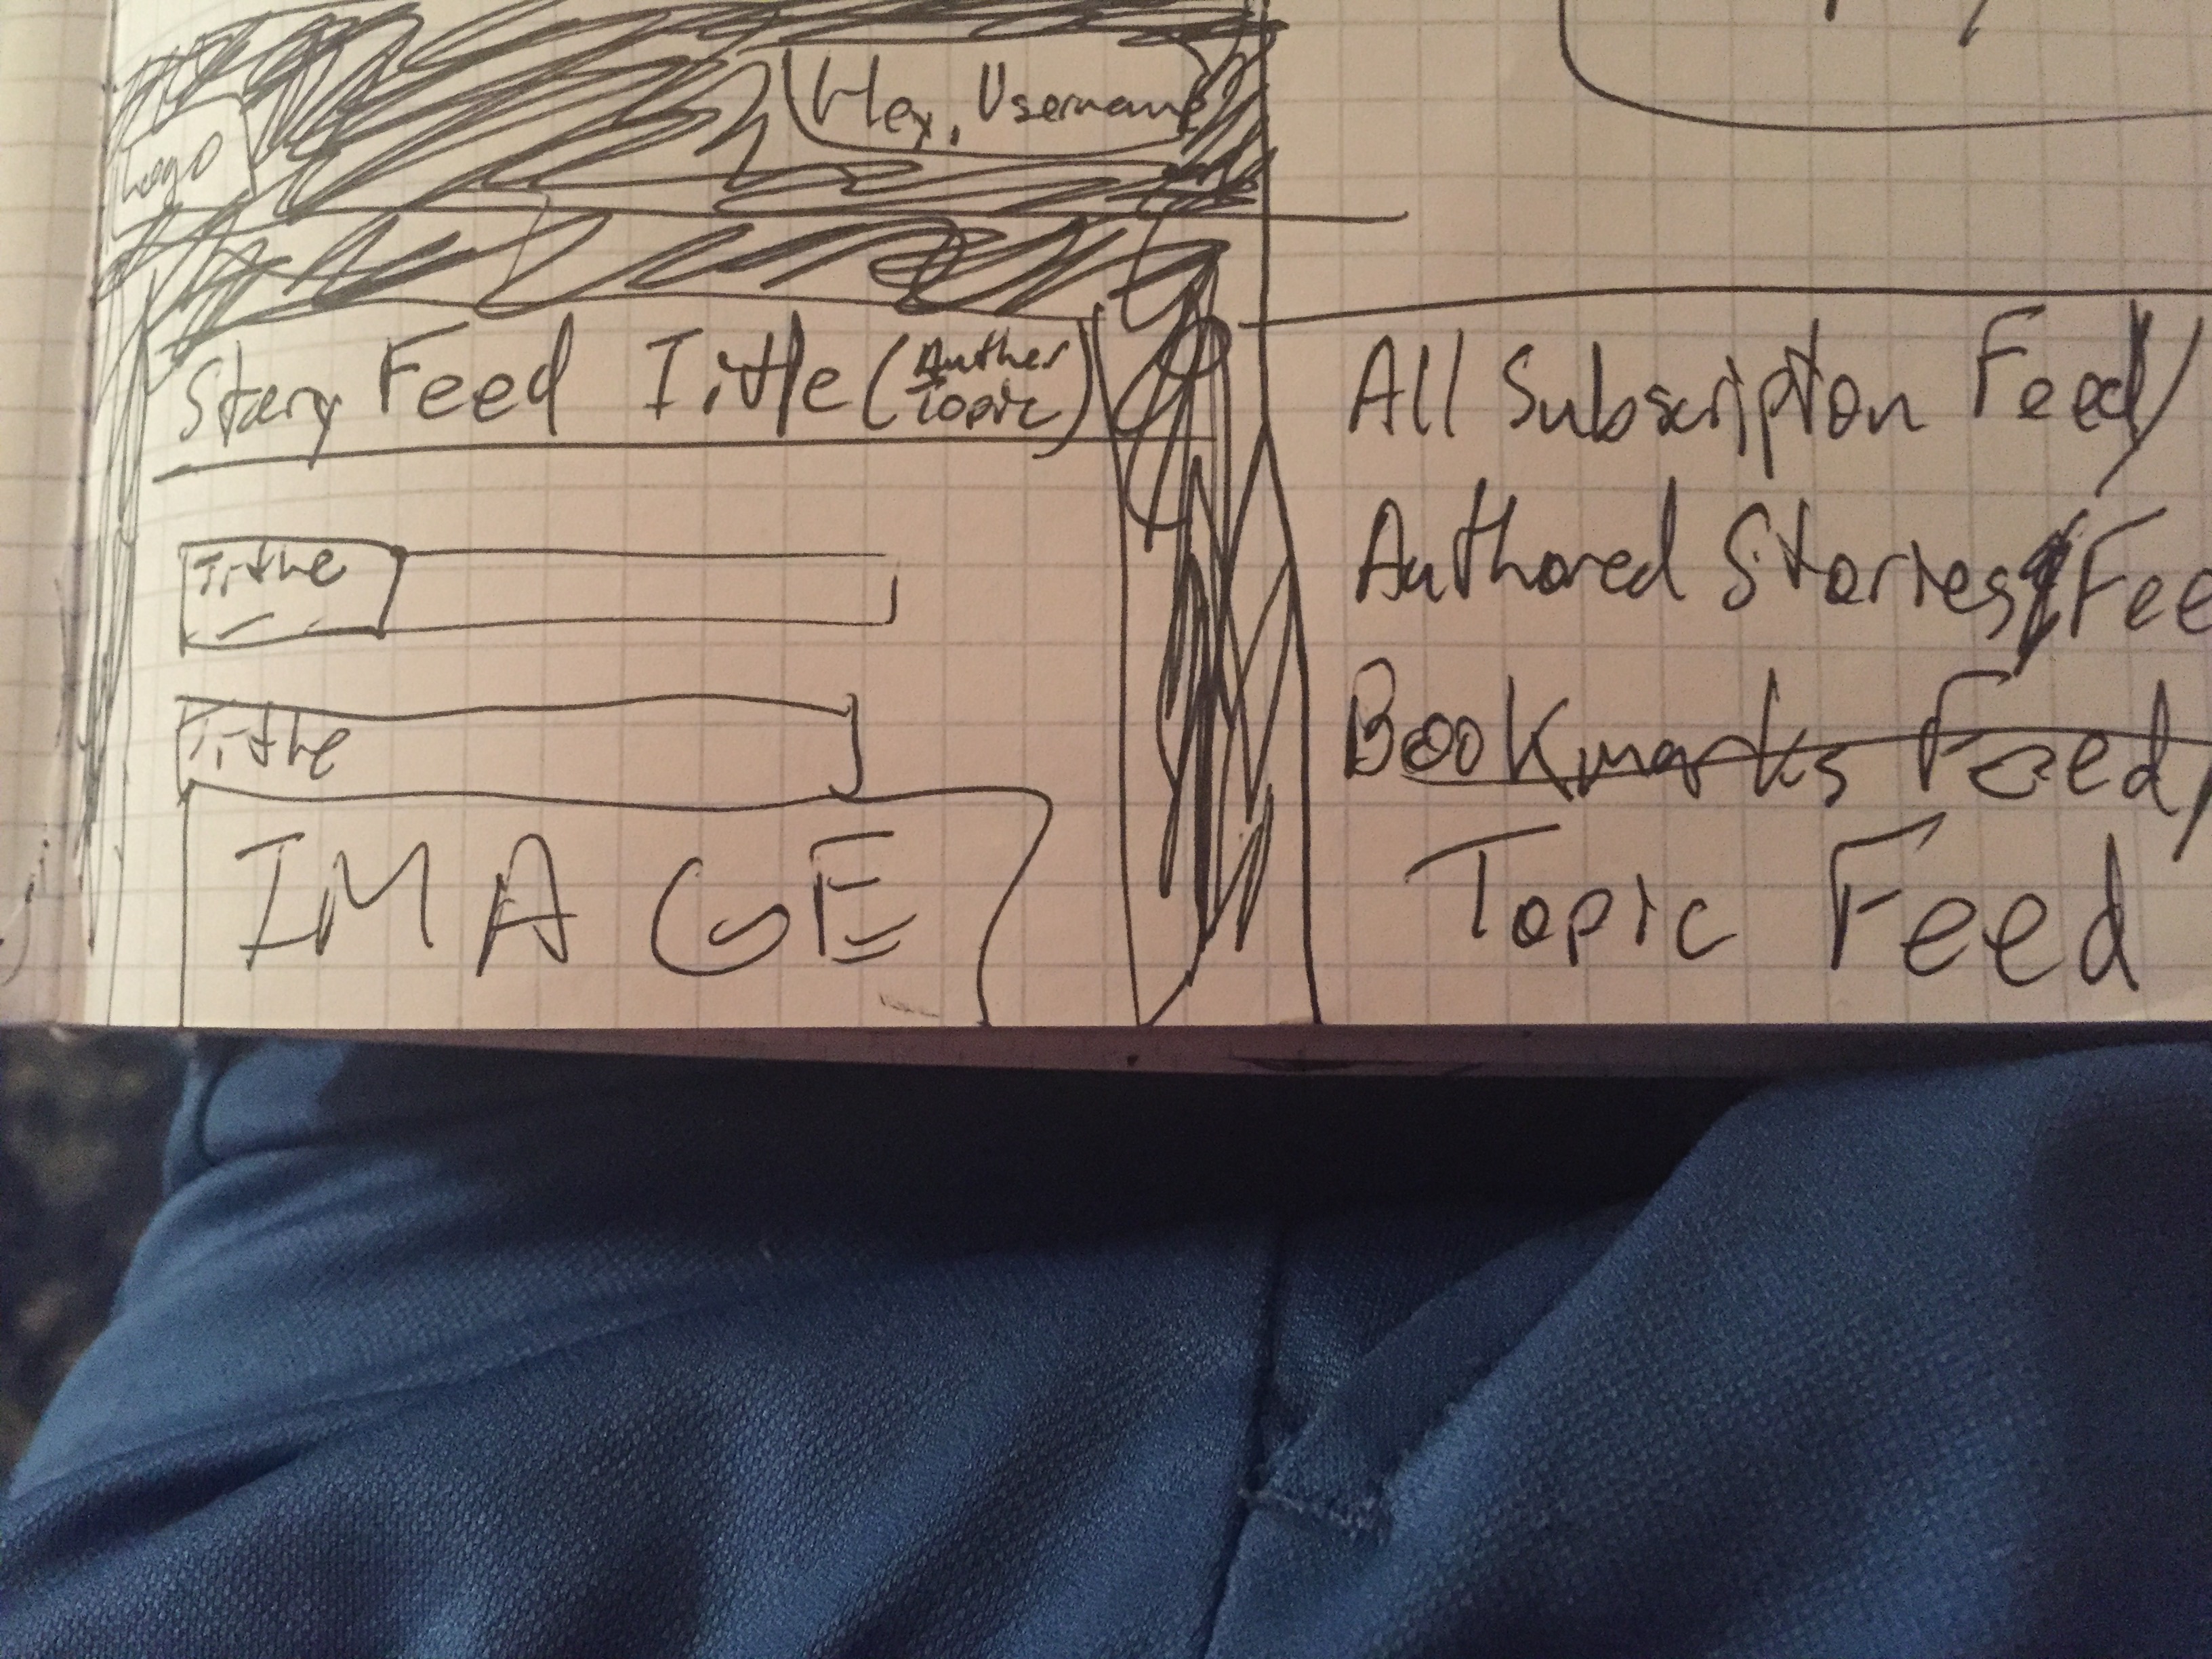 Logo
Hey, Username
Story Feed Title (Author
Topic)
Title
Title
IMAGE
All Subscription Feed/
Authored Stories Fee
Bookmarks Feed/
Topic Feed